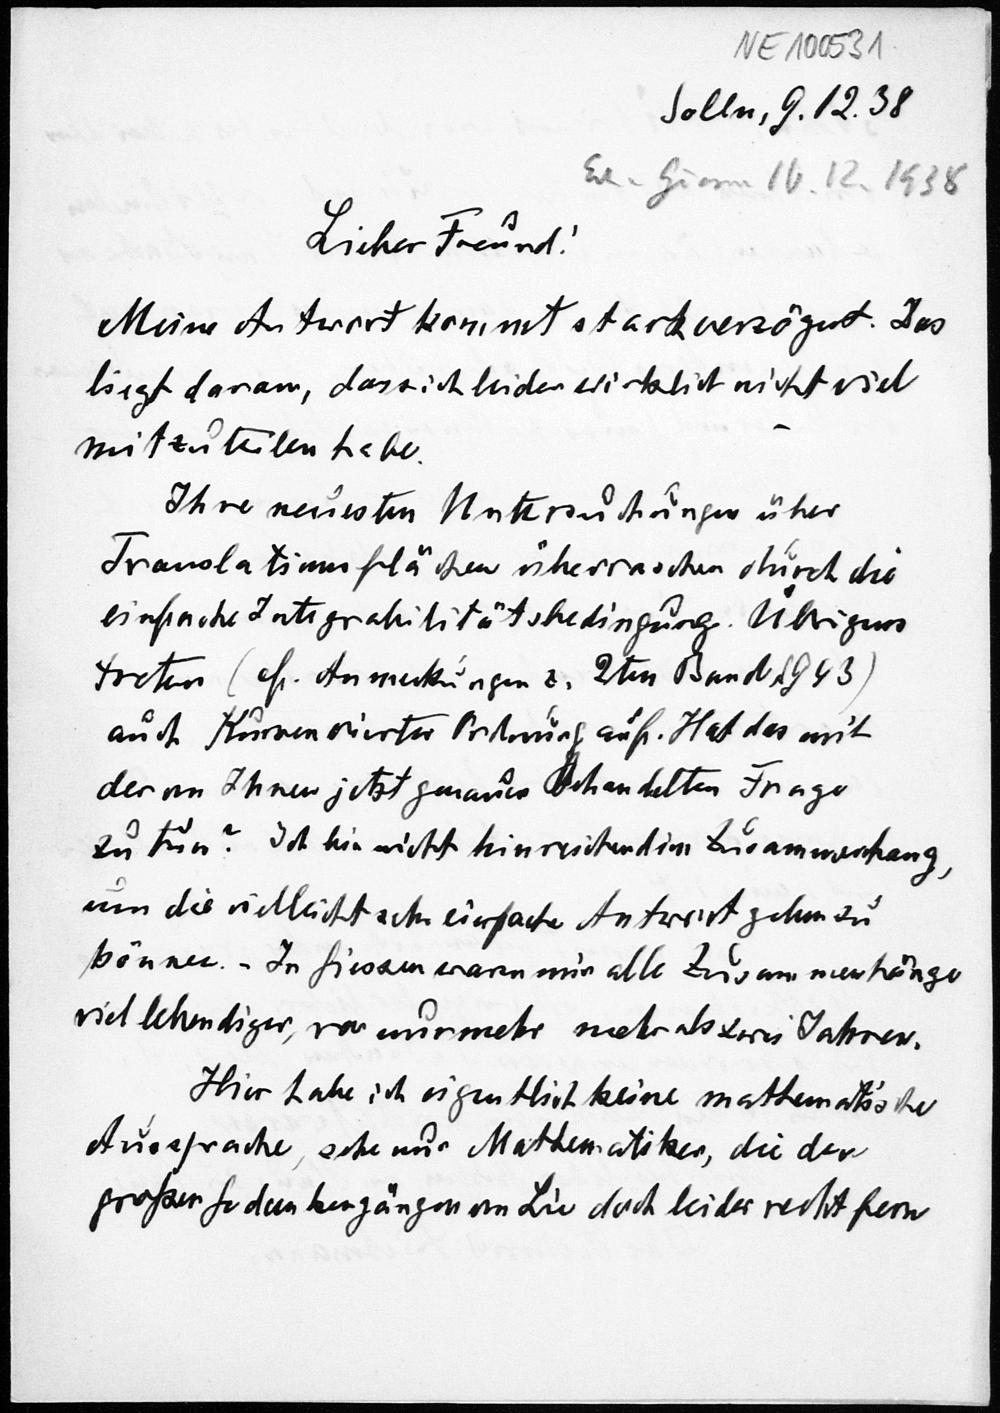 NE100531
Solln, 9.12.38
16.12.1938
Lieber Freund!
Meine Antwort kommt stark verzögert. Das
liegt daran, dass ich leider wirklich nicht viel
mitzuteilen habe.
Ihre neuesten Untersuchungen über
Translationsflächen überraschen durch die
einfache Integrabilitätsbedingung. Übrigens
treten (cf. Anmerkungen z. 2ten Band S 943)
auch Kurven vierter Ordnung auf. Hat das mit
der von Ihnen jetzt genauer behandelten Frage
zu tun? Ich bin nicht hinreichend im Zusammenhang,
um die vielleicht sehr einfache Antwort geben zu
können. - In Giessen waren mir alle Zusammenhänge
viel lebendiger, vor nunmehr mehr als zwei Jahren.
Hier habe ich eigentlich keine mathematische
Aussprache, sehe nur Mathematiker, die den
großen Gedankengängen von Lie doch leider recht fern